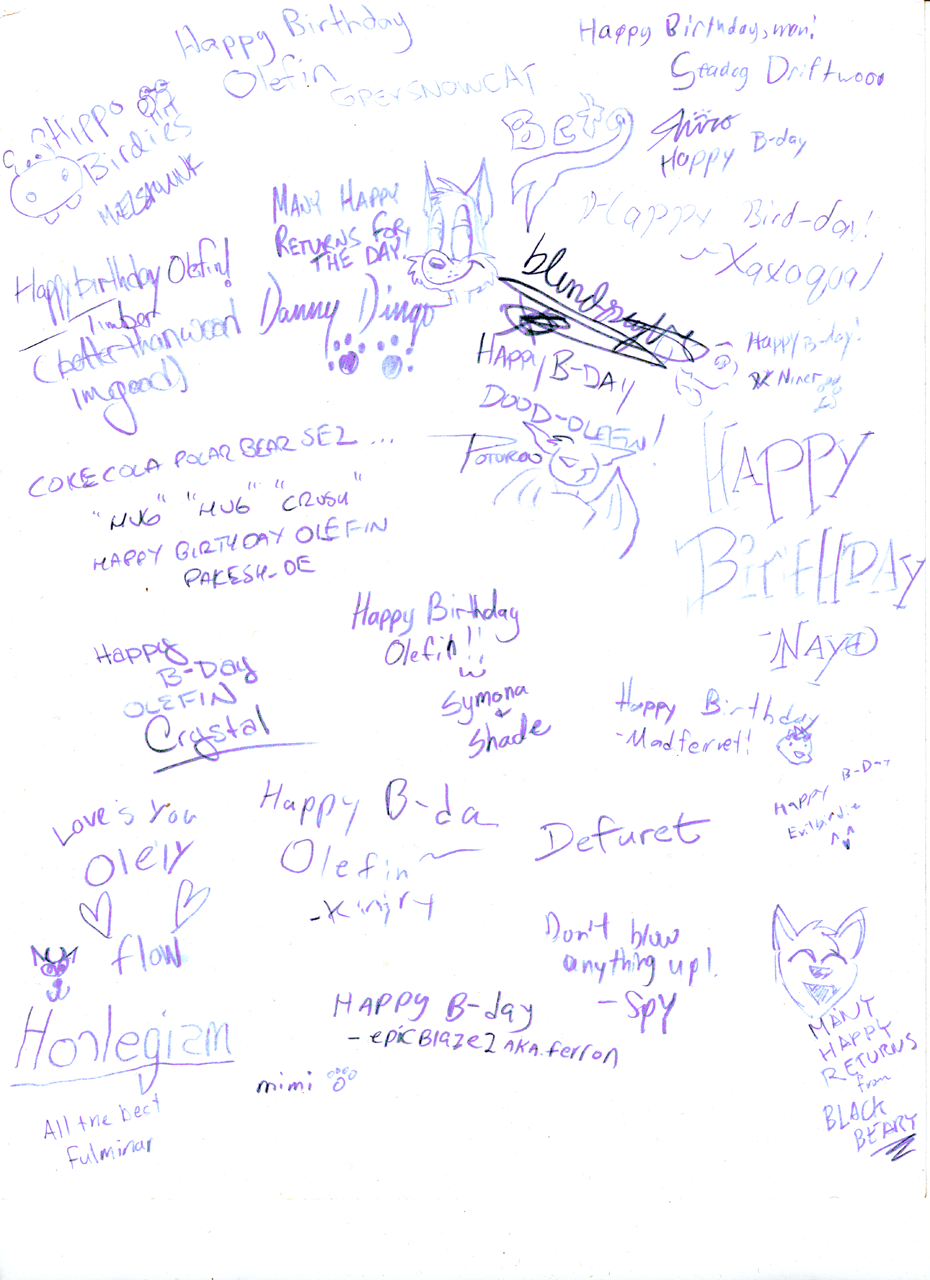 Happy Birthday
Olefin
GREYSNOWCAT
Happy Birthday, man!
Driftwood
Hippo
Birdies
Beta
Shiro
Happy B-day
MANY HAPPY
RETURNS FOR
THE DAY.
Danny Dingo
Happy Bird-day!
~Xaxoqual
Happy birthday Olefin!
Timber
(better than wood
im good)
HAPPY B-DAY
DOOD-OLEFIN!
POTOROO
Happy B-day!
Niner
COKECOLA POLAR BEAR SEZ ...
"HUG" "HUG" "CRUSH"
HAPPY BIRTHDAY OLEFIN
PAKESH-DE
HAPPY
BIRTHDAY
-NAYO
Happy
B-DAY
OLEFIN
Crystal
Happy Birthday
Olefin!!
Symona
Shade
Happy Birthday
-Madferret!
Happy B-Day
Evilbirdie
Love's You
Olely
flow
Happy B-da
Olefin~
Defuret
Don't blow
anything up!
-Spy
Happy B-day
- epicBlaze2 AKA. ferron
mimi
All the best
Fulminar
MANY
HAPPY
RETURNS
from
BLACK
BEARY